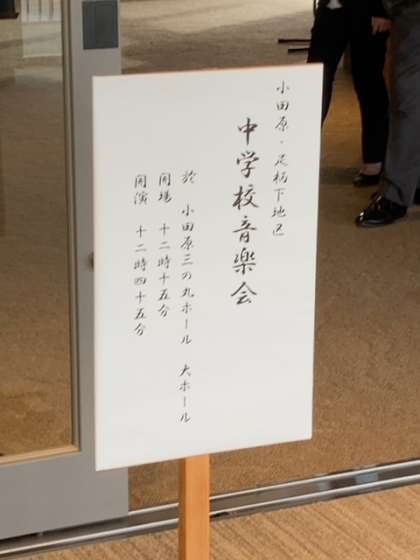 小田原・足柄下地区
中学校音楽会
於 小田原三の丸ホール 大ホール
開場 十二時十五分
開演 十二時四十五分